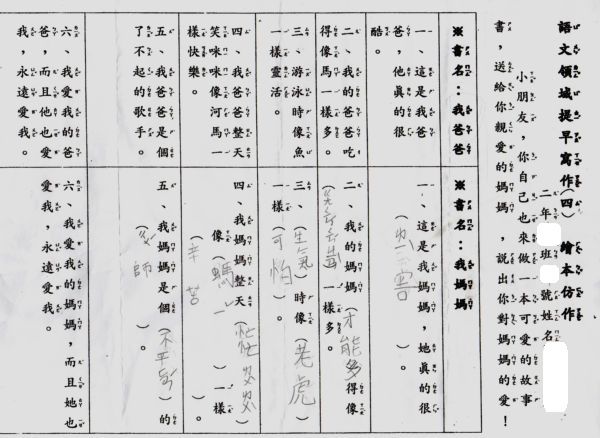 語文領域提早寫作(四) 繪本仿作
二年 班 號姓名
小朋友，你自己也來做一本可愛的故事
書，送給你親愛的媽媽，說出你對媽媽的愛！
※書名：我爸爸
一、這是我爸
爸，他真的很
酷。
二、我的爸爸吃
得像馬一樣多。
三、游泳時像魚
一樣靈活。
四、我爸爸整天
笑咪咪像河馬一
樣快樂。
五、我爸爸是個
了不起的歌手。
六、我愛我的爸
爸，而且他也愛
我，永遠愛我。
※書名：我媽媽
一、這是我媽媽，她真的很
（害）。
二、我的媽媽（才能多）得像
（）一樣多。
三、（生氣）時像（老虎）
一樣（可怕）。
四、我媽媽整天（忙忙）
像（螞）一樣
（辛苦）。
五、我媽媽是個（不平）的
（師）。
六、我愛我的媽媽，而且她也
愛我，永遠愛我。